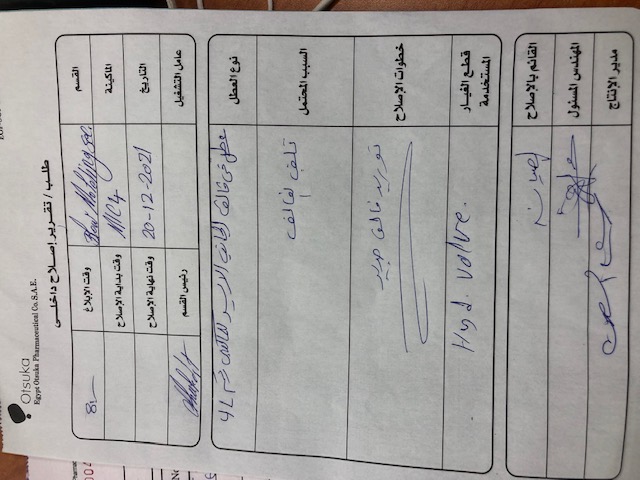 Otsuka
Egypt Otsuka Pharmaceutical Co. S.A.E.
طلب / تقرير إصلاح داخلى
القسم Blow Molding sec. وقت الإبلاغ 8:-
الماكينة MIC4 وقت بداية الإصلاح
التاريخ 20-12-2021 وقت نهاية الإصلاح
عامل التشغيل رئيس القسم
نوع العطل عطل فى فالف الجانب الايسر للماكينه رقم 4L
السبب المحتمل تلف الفالف
خطوات الإصلاح توريد فالف جديد
قطع الغيار المستخدمة Hyd. valve.
القائم بالإصلاح الصيانه
المهندس المسئول
مدير الإنتاج